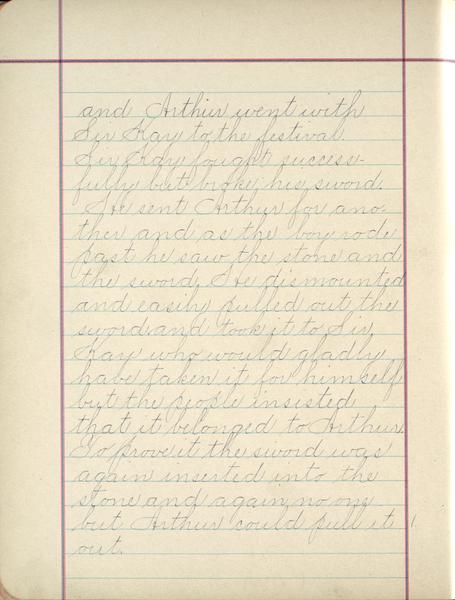 and Arthur went with
Sir Kay to the festival
Sir Kay fought success-
fully but broke his sword.
He sent Arthur for ano-
ther and as the boy rode
past he saw the stone and
the sword. He dismounted
and easily pulled out the
sword and took it to Sir
Kay who would gladly
have taken it for himself
but the people insisted
that it belonged to Arthur.
To prove it the sword was
again inserted into the
stone and again no one
but Arthur could pull it
out.